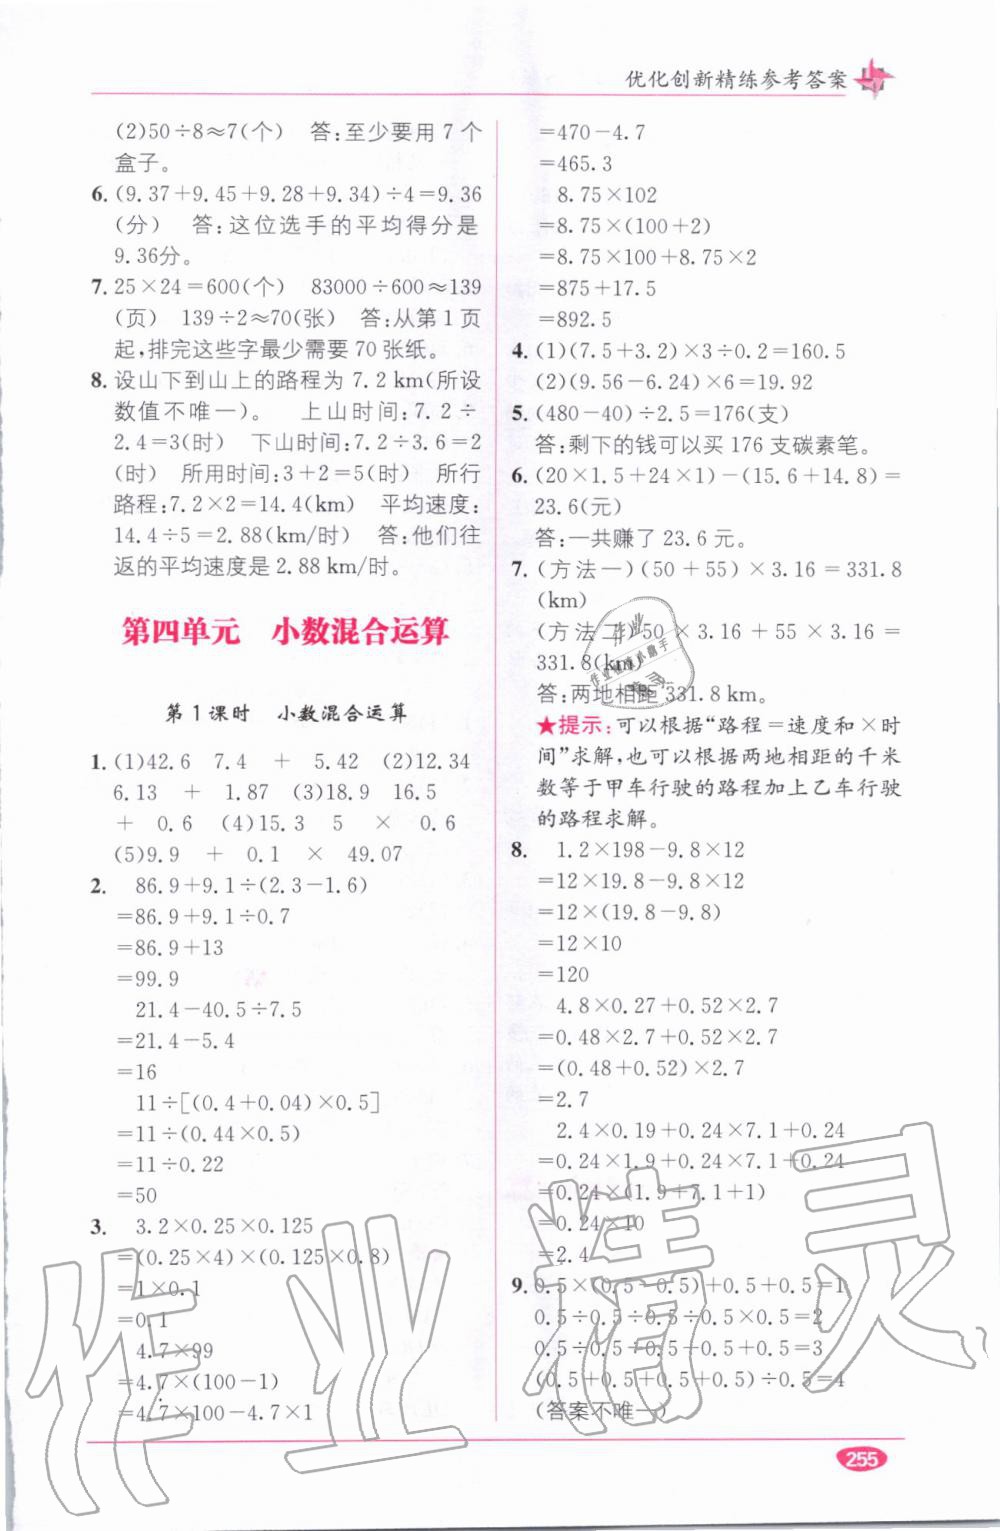 优化创新精练参考答案
(2)50÷8≈7(个)　答:至少要用 7 个
盒子。
6. (9.37+9.45+9.28+9.34)÷4=9.36
(分)　答:这位选手的平均得分是
9.36分。
7. 25×24=600(个)　83000÷600≈139
(页)　139÷2≈70(张)　答:从第 1 页
起,排完这些字最少需要 70 张纸。
8. 设山下到山上的路程为 7.2 km(所设
数值不唯一)。　上山时间:7.2÷
2.4=3(时)　下山时间:7.2÷3.6=2
(时)　所用时间:3+2=5(时)　所行
路程:7.2×2=14.4(km)　平均速度:
14.4÷5=2.88(km/时)　答:他们往
返的平均速度是 2.88 km/时。
第四单元　小数混合运算
第 1 课时　小数混合运算
1. (1)42.6　7.4　+　5.42　(2)12.34
6.13　+　1.87　(3)18.9　16.5
+　0.6　(4)15.3　5　×　0.6
(5)9.9　+　0.1　×　49.07
2.　86.9+9.1÷(2.3-1.6)
=86.9+9.1÷0.7
=86.9+13
=99.9
21.4-40.5÷7.5
=21.4-5.4
=16
11÷[(0.4+0.04)×0.5]
=11÷(0.44×0.5)
=11÷0.22
=50
3.　3.2×0.25×0.125
=(0.25×4)×(0.125×0.8)
=1×0.1
=0.1
4.7×99
=4.7×(100-1)
=4.7×100-4.7×1
=470-4.7
=465.3
8.75×102
=8.75×(100+2)
=8.75×100+8.75×2
=875+17.5
=892.5
4. (1)(7.5+3.2)×3÷0.2=160.5
(2)(9.56-6.24)×6=19.92
5. (480-40)÷2.5=176(支)
答:剩下的钱可以买 176 支碳素笔。
6. (20×1.5+24×1)-(15.6+14.8)=
23.6(元)
答:一共赚了 23.6 元。
7. (方法一)(50+55)×3.16=331.8
(km)
(方法二)50×3.16+55×3.16=
331.8(km)
答:两地相距 331.8 km。
★提示:可以根据“路程=速度和×时
间”求解,也可以根据两地相距的千米
数等于甲车行驶的路程加上乙车行驶
的路程求解。
8.　1.2×198-9.8×12
=12×19.8-9.8×12
=12×(19.8-9.8)
=12×10
=120
4.8×0.27+0.52×2.7
=0.48×2.7+0.52×2.7
=(0.48+0.52)×2.7
=2.7
2.4×0.19+0.24×7.1+0.24
=0.24×1.9+0.24×7.1+0.24
=0.24×(1.9+7.1+1)
=0.24×10
=2.4
9. 0.5×(0.5-0.5)+0.5+0.5=1
0.5÷0.5÷0.5÷0.5×0.5=2
0.5÷0.5÷0.5+0.5+0.5=3
(0.5+0.5+0.5+0.5)÷0.5=4
(答案不唯一)
作业精灵
255